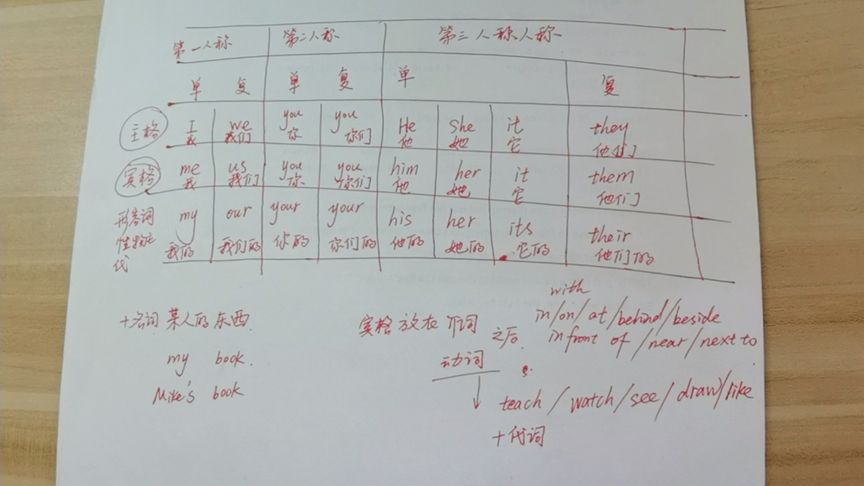 第一人称 第二人称 第三人称人称
单 复 单 复 单 复
主格 I we you you He she it they
我 我们 你 你们 他 她 它 他们
宾格 me us you you him her it them
我 我们 你 你们 他 她 它 他们
形容词 my our your your his her its their
性物主 我的 我们的 你的 你们的 他的 她的 它的 他们的
代
with
+名词 某人的东西 宾格放在 介词 之后 in/on/at/behind/beside
my book. in front of /near/next to
动词
Mike's book teach / watch/see/ draw/like
+代词